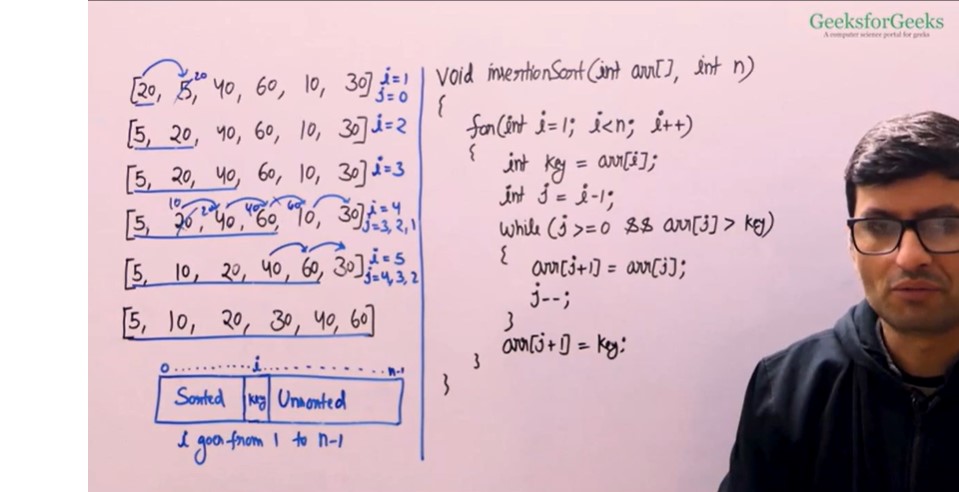 GeeksforGeeks
A computer science portal for geeks
[20, 5, 40, 60, 10, 30] i=1
20
j=0
[5, 20, 40, 60, 10, 30] i=2
[5, 20, 40, 60, 10, 30] i=3
10 20 40 60
[5, 20, 40, 60, 10, 30] i=4
j=3, 2, 1
[5, 10, 20, 40, 60, 30] i=5
j=4, 3, 2
[5, 10, 20, 30, 40, 60]
0 ........ i ........ n-1
Sorted key Unsorted
i goes from 1 to n-1
void insertionSort(int arr[], int n)
{
for(int i=1; i<n; i++)
{
int key = arr[i];
int j = i-1;
while (j>=0 && arr[j] > key)
{
arr[j+1] = arr[j];
j--;
}
arr[j+1] = key;
}
}